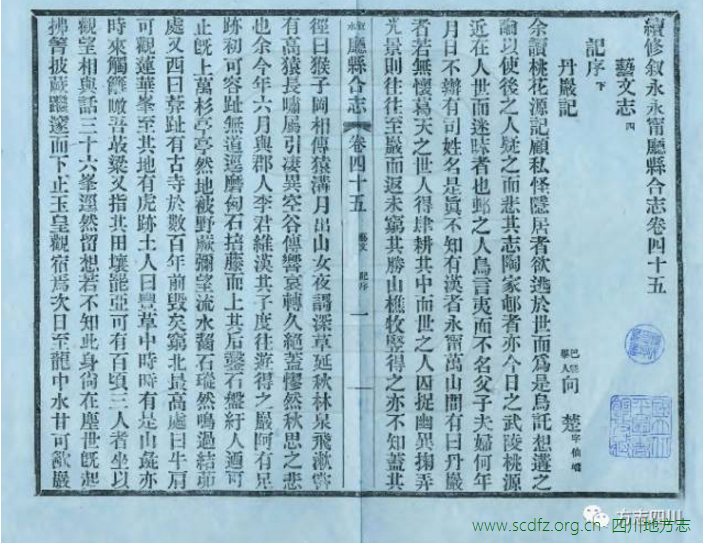 續修敘永永甯廳縣合志卷四十五
藝文志 四
記序 下
丹巖記
巴縣舉人 向楚 字仙樵
余讀桃花源記顧私怪隱居者欲逃於世而爲是烏託想遘之
論以使後之人疑之而悲其志陶家邨者亦今日之武陵桃源
近在人世而迷時者也邨之人鳥言夷而不名父子夫婦何年
月日不辨有司姓名是眞不知有漢者永甯萬山間有曰丹巖
者若無懷葛天之世人得肆耕其中而世之人罔捉幽異掬弄
光景則往往至巖而返未窮其勝山樵牧豎得之亦不知蓋其
敘永廳縣合志 卷四十五 藝文 記序 一
徑曰猴子岡相傳猿溝月出山女夜謌深草延秋林泉飛漱嘗
有高猿長嘯屬引凄異空谷傳響哀轉久絕蓋慘然秋思之悲
也余今年六月與郡人李君維漢其子度往遊得之巖阿有足
跡初可容趾無道逕磨匈石掊藤而上其后鑿石盤紆人迹可
止旣上萬杉亭亭然地被野蕨彌望流水齧石瑽然鳴過結茆
處又西曰葶趾有古寺於數百年前毀矣窮北最高處曰牛肩
可觀蓮華峯至其地有虎跡土人曰豐草中時時有是山彘亦
時來觸雜噉吾菽粱又指其田壤龍亞可有百頃三人者坐以
觀望相與話三十六峯逕然留想若不知此身尙在塵世旣起
拂箐披蕨躡邃而下止玉皇觀宿焉次日至龍中水甘可歠巖
方志四川
www.scdfz.org.cn 四川地方志